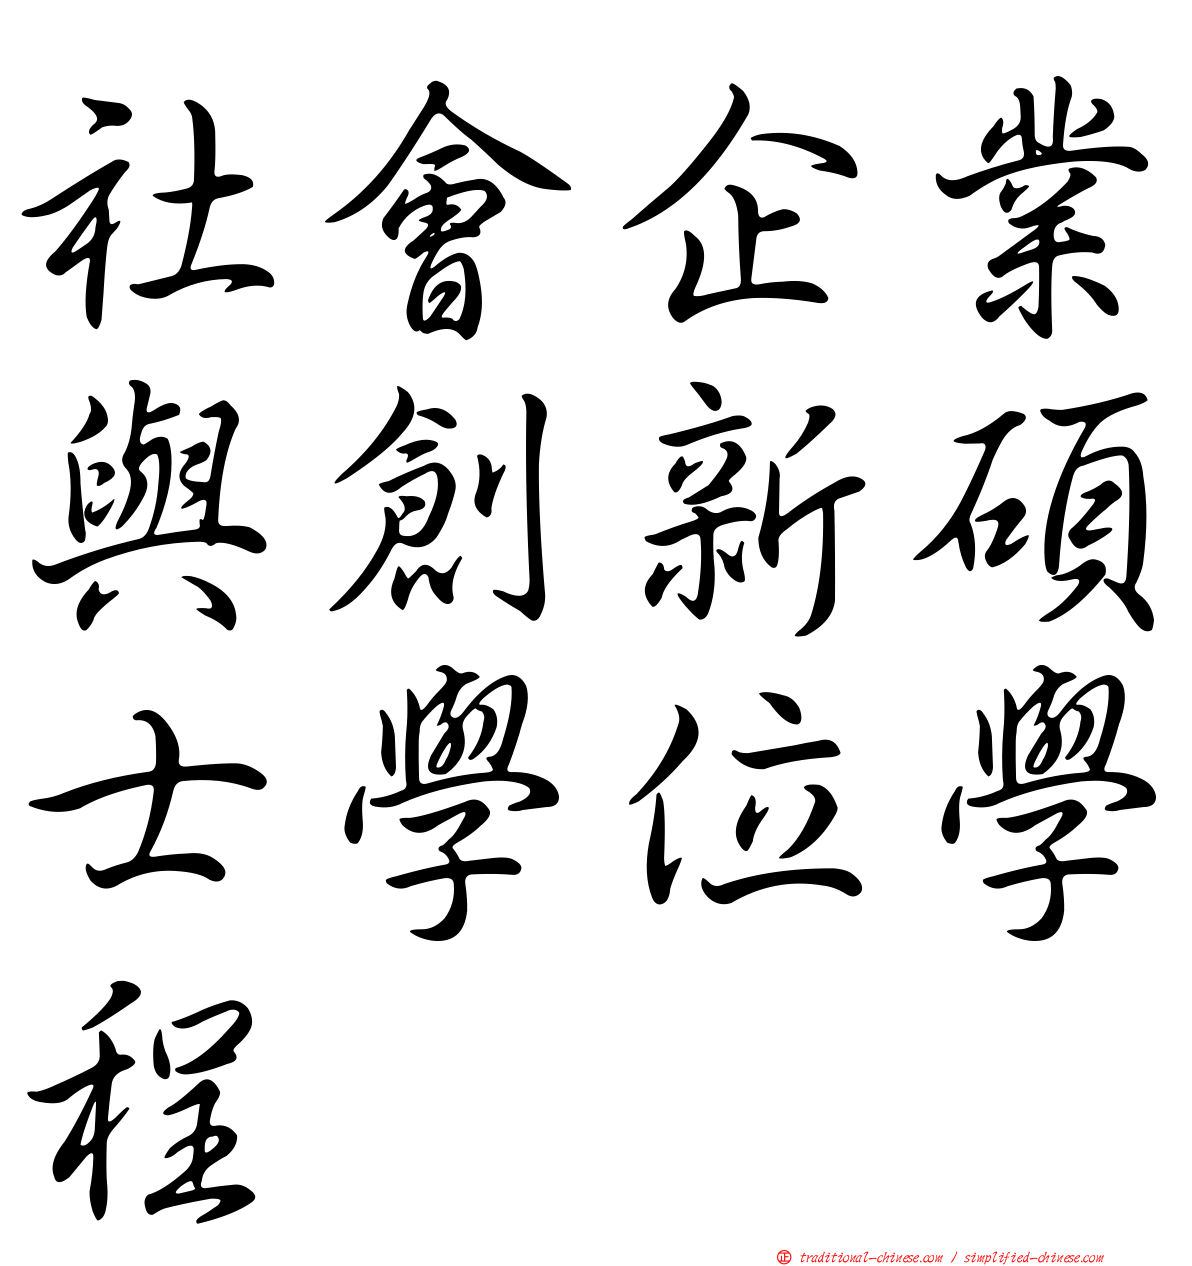 社會企業
與創新碩
士學位學
程
正 traditional-chinese.com / simplified-chinese.com